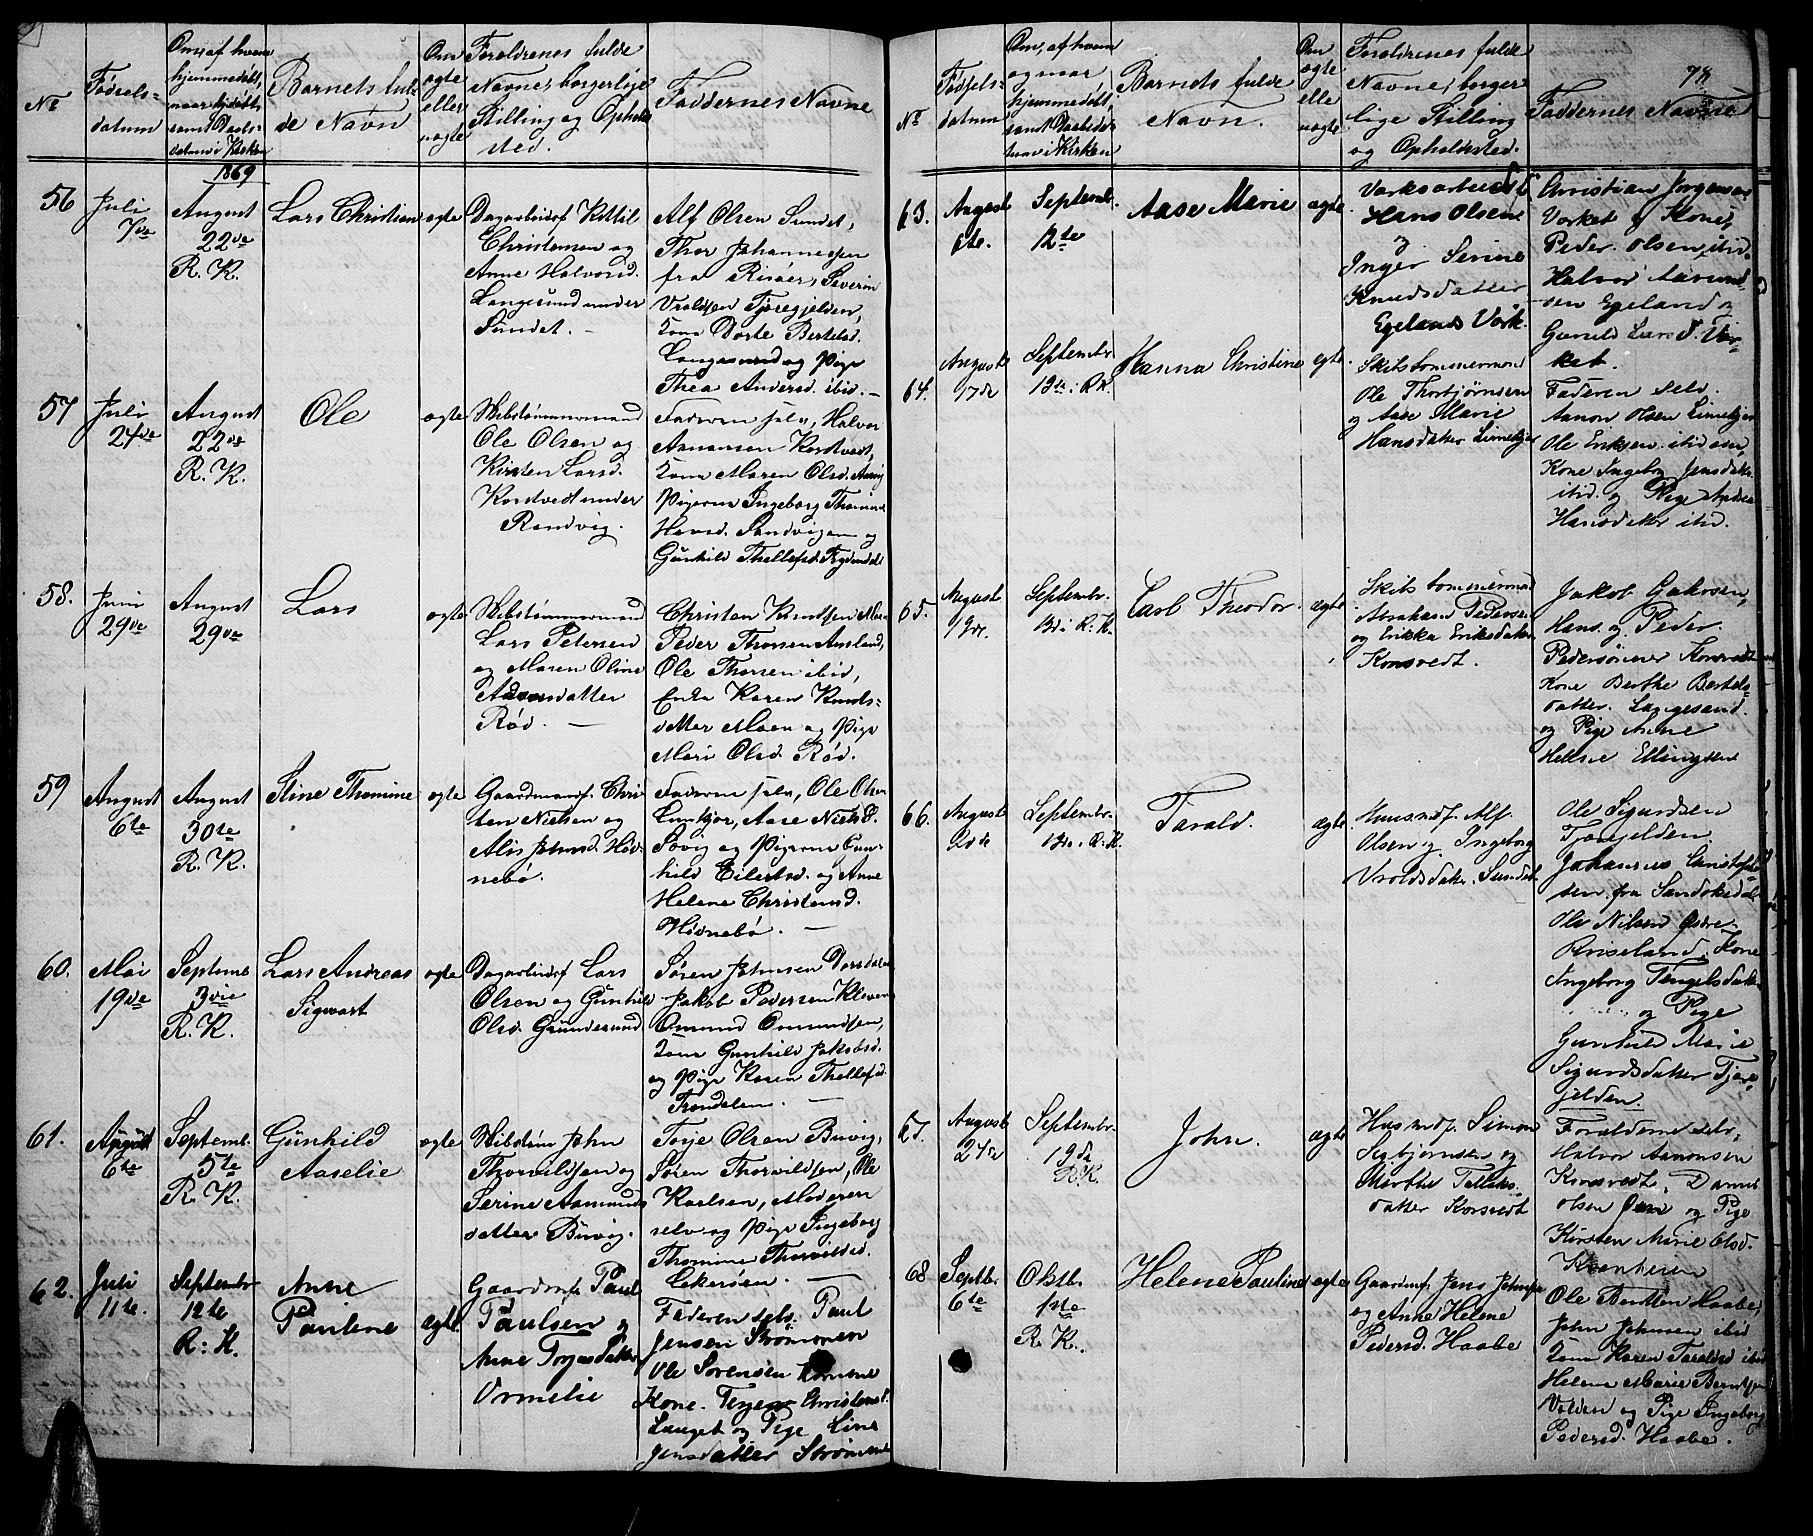 No
Fødsels-
datum
Om, af hvem
hjemmedøbt,
naar hjdøbt,
samt Daabs-
datum i Kirken
Barnets ful-
de Navn
Om
ægte
eller
uægte
Forældrenes fulde
Navne, borgerlige
Stilling og Ophold-
sted.
Faddernes Navne
1869
56
Juli
7de
August
22de
R. K.
Lars Christian
ægte
Dagarbeidsf Kittil
Christensen og
Anne Halvorsd.
Langesund under
Sundet. —
Alf Olsen Sundet,
Thor Johannessen
fra Risøer, Severin
Vraldsen Tjøregjelden,
Kone Dorte Bertelsd.
Langesund og Pige
Thea Andersd. ibid. —
57
Juli
24de
August
22de
R. K.
Ole
ægte
Skibstømmermand
Ole Olsen og
Kirsten Larsd.
Korsvedt under
Randvig.
Faderen selv, Halvor
Aanonsen Korsvedt,
Kone Maren Olsd.
Pigerne Ingeborg Thomine
Hansd. Sandvigen og
Gunhild Thellefsd.
58.
Juni
29de
August
29de
Lars
ægte
Skibstømmermand
Lars Petersen
og Maren Oline
Rød. —
Christen Knutsen Moen
Peder Thorsen Aasland,
Ole Thorsen ibid,
Enke Karen Knuds-
datter Moen og Pige
Mari Olsd. Rød.
59
August
6te
August
30te
R. K.
Stine Thomine
ægte
Gaardmandf. Chri-
sten Nielsen og
Alis Johnsd. Høv-
nebø.
Faderen selv, Ole Olsen
Aase Nielsd.
og Pigerne Gun-
hild Eilertsd. og Anne
Helene Christensd.
Høvnebø. —
60.
Mai
19de
Septemb
3die
R. K.
Lars Andreas
Sigvart
ægte
Dagarbeidsf Lars
Olsen og Gunhild
Olsd. Grundesund
Søren Johnsen Dorsdalen
Jakob Pedersen Kleven
Omund Omundsen,
Kone Gunhild Jakobsd.
og Pige Karen Thellefsd.
Trondalen. —
61.
August
6te
Septemb.
5te
R. K.
Gunhild
Aaselie
ægte
Skibstøm John
Thorvildsen og
Serine Aamunds
datter Buvig.
Torje Olsen Buvig,
Søren Thorvildsen, Ole
Moderen
selv og Pige Ingeborg
Thomine Thorvildsd.
—
62.
Juli
11te.
Septembr
12te
R: K.
Anne
Pauline
ægte
Gaardmf Paul
Paulsen og
Anne Torjesdatter
Urnelie
Faderen selv. Paul
Jensen Strømmen
Ole Sørensen
Kone. Christensd.
og Pige Line
Jensdatter Strømmen
No
Fødsels-
datum
Om, af hvem
og naar
hjemmedøbt,
samt Daabsda-
tum i Kirken
Barnets fulde
Navn.
Om
ægte
elle
uægte
Forældrenes fulde
Navne, borger
lige Stilling
og Opholdssted.
78
Faddernes Navne
63.
August
6te.
Septembr.
12te
Aase Marie
ægte
Værksarbeid
Hans Olsen
og
Inger Serine
Knudsdatter
Egelands Værk.
Christian Jørgensen
Værket og Kone,
Peder Olsen, ibid.
Halvor
Egeland og
Gunild Larsd. Vær-
ket.
64.
August
17de
Septembr.
12te: R.K.
Hanna Christine
ægte.
Skibstømmermand
Ole Thorbjørnsen
og Aase Marie
Hansdatter
Faderen selv.
Aanon Olsen
Ole Eriksen ibid
Kone Ingebog Jensdatter
ibid. og Pige Andrea
Hansdatter ibid.
65.
August
19de.
Septembr.
R. K.
Carl Theodor.
ægte
Skibstømmermand
Abraham Pedersen
og Erikka Eriksdatter
Korsvedt.
Jakob
Hans og Peder
Pedersønner Korsvedt
Kone Berthe Bertels-
datter. Langesund.
og Pige Anne
66.
August
Septembr.
R. K.
Tarald.
ægte
Husmdf. Alf
Olsen og Ingeborg
Vroldsdatter. Sundet.
Ole Sigurdsen
Tjøregjelden
Johannes Christophe
sen fra Søndeled
Ole Nilsen Østre
Riseland, Kone
Ingeborg Tengelsdatter
og Pige
Gunhild Marie
Sigurdsdatter Tjøre-
gjelden.
67.
August
27de
Septembr.
19de
R.K.
John.
ægte
Husmdf. Simon
Sigbjørnsen og
Marthe Tellefs-
datter Korsvedt
Forældrene selv,
Halvor Aanonsen
Korsvedt, Daniel
Olsen og Pige
Kirsten Marie Olsd.
68
Septb.
6te
Oktb.
1ste
R. K.
Helene Pauline
ægte
Gaardmf Jens Johnsen
og Anne Helene
Pedersd. Haabe
Ole Berntsen Haabe,
John Johnsen ibid
Kone Karen Taraldsd ibid
Helene Marie Berntsen
Volden og Pige Ingeborg
Pedersd. Haabe.